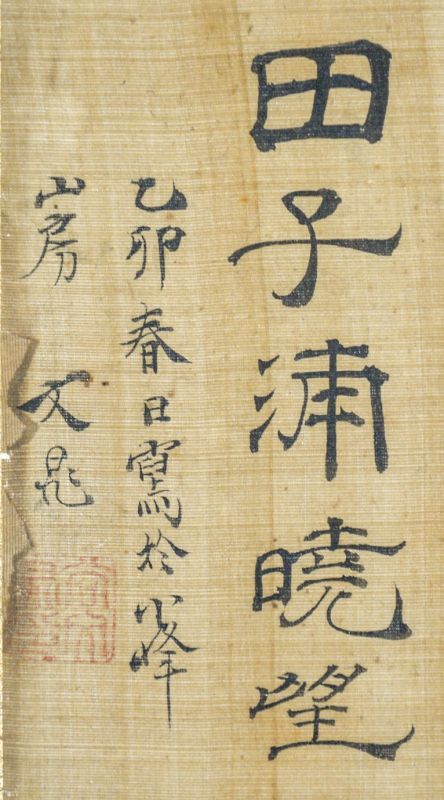 田子浦曉望
乙卯春日寫於小峰
山房 文晁